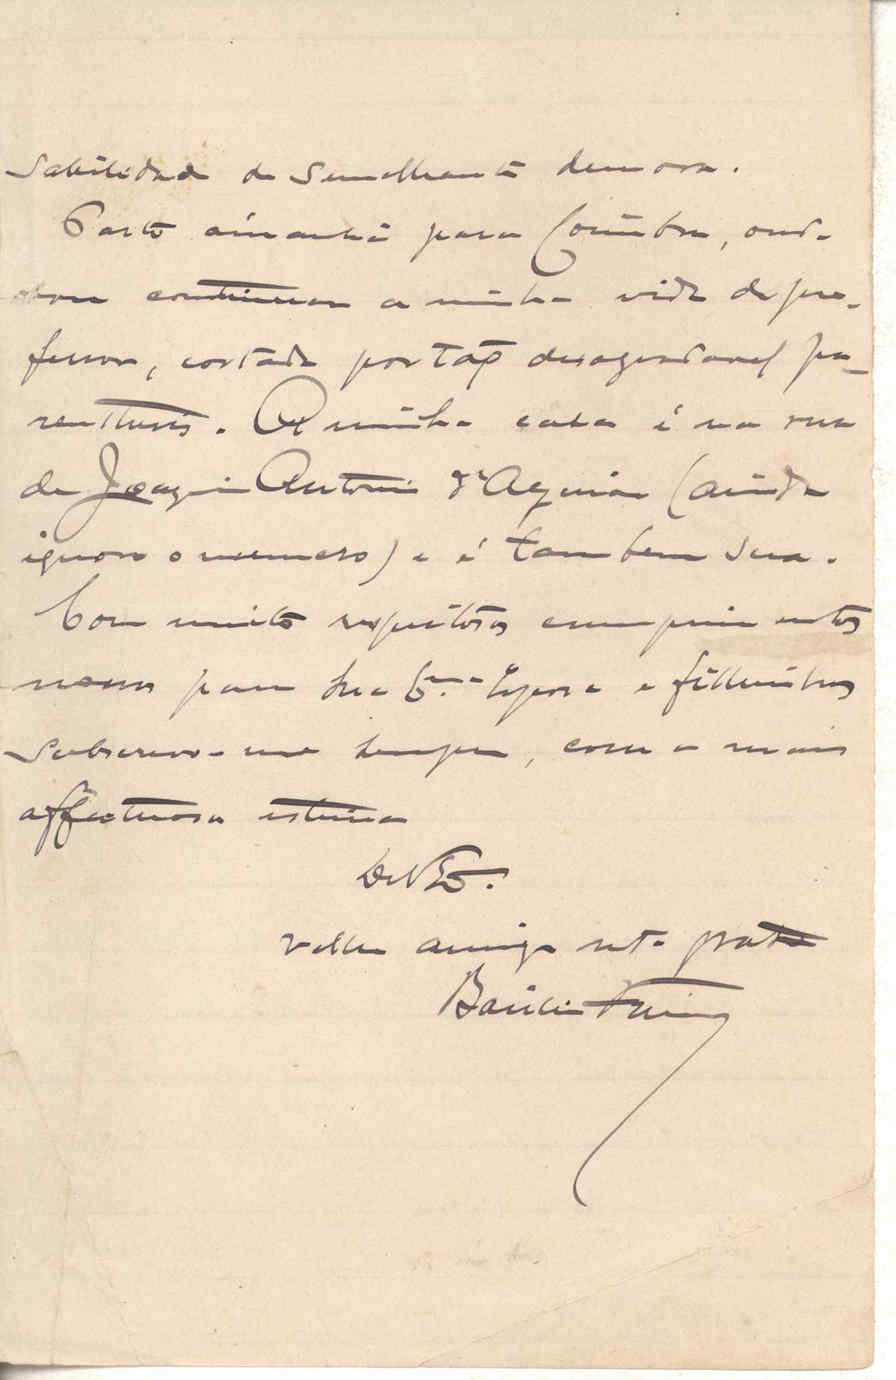 sabilidade de semelhante demora.
Parto ámanhã para Coimbra, onde
vou continuar a minha vida de pro-
fessor, cortada por tão desagradavel pa-
renthesis. A minha casa é na rua
de Joaquim Antonio d'Aguiar (ainda
ignoro o numero) e é tambem sua.
Com muito respeitosos cumprimentos
nossos para sua Ex.ma Esposa e filhinhos
subscrevo-me sempre, com a mais
affectuosa estima
De V. Ex.
velho amigo mto grato